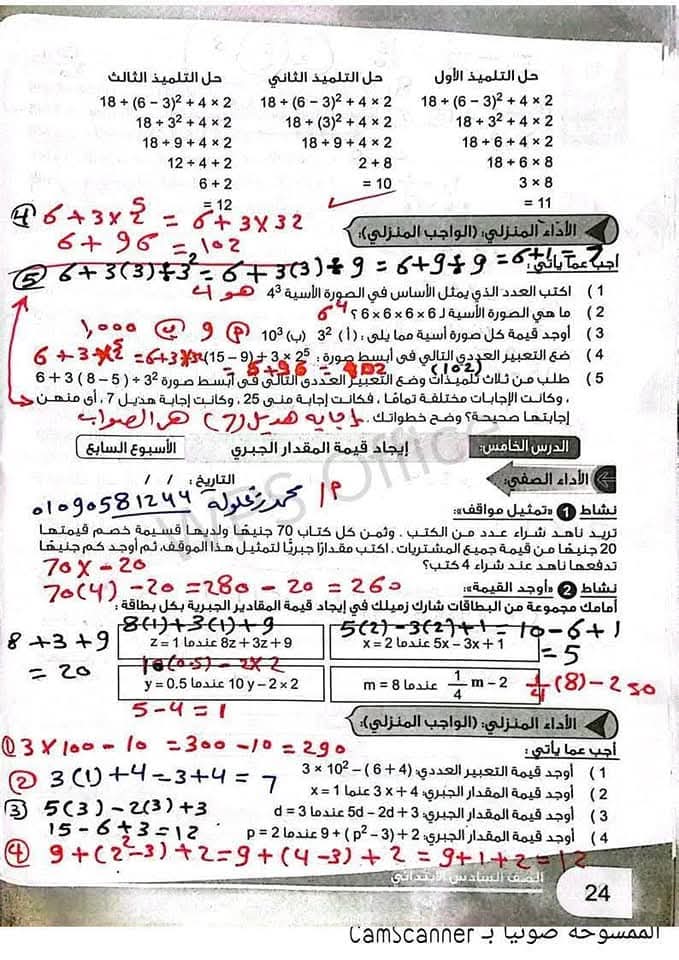 حل التلميذ الأول حل التلميذ الثاني حل التلميذ الثالث
18 ÷ (6 – 3)² + 4 × 2 18 ÷ (6 – 3)² + 4 × 2 18 ÷ (6 – 3)² + 4 × 2
18 ÷ 3² + 4 × 2 18 ÷ (3)² + 4 × 2 18 ÷ 3² + 4 × 2
18 ÷ 6 + 4 × 2 18 ÷ 9 + 4 × 2 18 ÷ 9 + 4 × 2
18 ÷ 6 × 8 2 + 8 12 ÷ 4 ÷ 2
3 × 8 = 10 6 ÷ 2
= 11 = 12
④ 6 + 3 × 2⁵ = 6 + 3 × 32
6 + 96 = 102
الأداء المنزلي: (الواجب المنزلي):
أجب عما يأتي:
⑤ 6 + 3(3) ÷ 3² = 6 + 3(3) ÷ 9 = 6 + 9 ÷ 9 = 6 + 1 = 7
1 ) اكتب العدد الذي يمثل الأساس في الصورة الأسية 4³ هو 4
2 ) ما هي الصورة الأسية لـ 6 × 6 × 6 × 6 ؟ 6⁴
3 ) أوجد قيمة كل صورة أسية مما يلي: (أ) 3² (ب) 10³ (أ) 9 (ب) 1,000
4 ) ضع التعبير العددي التالي في أبسط صورة: (15 – 9) + 3 × 2⁵
6 + 3 × 2⁵ = 6 + 3 × 32
= 6 + 96 = 102 (102)
5 ) طلب من ثلاث تلميذات وضع التعبير العددي التالي في أبسط صورة 6 + 3 ( 8 – 5 ) ÷ 3²
، وكانت الإجابات مختلفة تمامًا ، فكانت إجابة منى 25، وكانت إجابة هديل 7، أي منهن
إجابتها صحيحة؟ وضح خطواتك. إجابة هديل (7) هى الصواب
الدرس الخامس: إيجاد قيمة المقدار الجبري الأسبوع السابع
WPS Office
الأداء الصفي: التاريخ: / /
أ/ محمد زغلولة 01090581244
نشاط 1 «تمثيل مواقف»:
تريد ناهد شراء عدد من الكتب . وثمن كل كتاب 70 جنيهًا ولديها قسيمة خصم قيمتها
20 جنيهًا من قيمة جميع المشتريات. اكتب مقدارًا جبريًا لتمثيل هذا الموقف، ثم أوجد كم جنيهًا
تدفعها ناهد عند شراء 4 كتب؟
70x – 20
70(4) – 20 = 280 – 20 = 260
نشاط 2 «أوجد القيمة»:
أمامك مجموعة من البطاقات شارك زميلك في إيجاد قيمة المقادير الجبرية بكل بطاقة:
5(2) – 3(2) + 1 = 10 – 6 + 1
= 5
8(1) + 3(1) + 9
8 + 3 + 9
= 20
5x – 3x + 1 عندما x = 2 8z + 3z + 9 عندما z = 1
10(0.5) – 2×2
¼ m – 2 عندما m = 8 10 y – 2 × 2 عندما y = 0.5
¼(8) – 2
5 – 4 = 1
الأداء المنزلي: (الواجب المنزلي):
① 3 × 100 – 10 = 300 – 10 = 290
أجب عما يأتي:
1 ) أوجد قيمة التعبير العددي: 3 × 10² – ( 6 + 4 )
② 3(1) + 4 = 3 + 4 = 7
2 ) أوجد قيمة المقدار الجبري: 3 x + 4 عنما x = 1
③ 5(3) – 2(3) + 3
15 – 6 + 3 = 12
3 ) أوجد قيمة المقدار الجبري: 5d – 2d + 3 عندما d = 3
4 ) أوجد قيمة المقدار الجبري: 9 + (p² – 3) + 2 عندما p = 2
④ 9 + (2² – 3) + 2 = 9 + (4 – 3) + 2 = 9 + 1 + 2 = 12
الصف السادس الابتدائي
24
الممسوحة ضوئيا بـ CamScanner